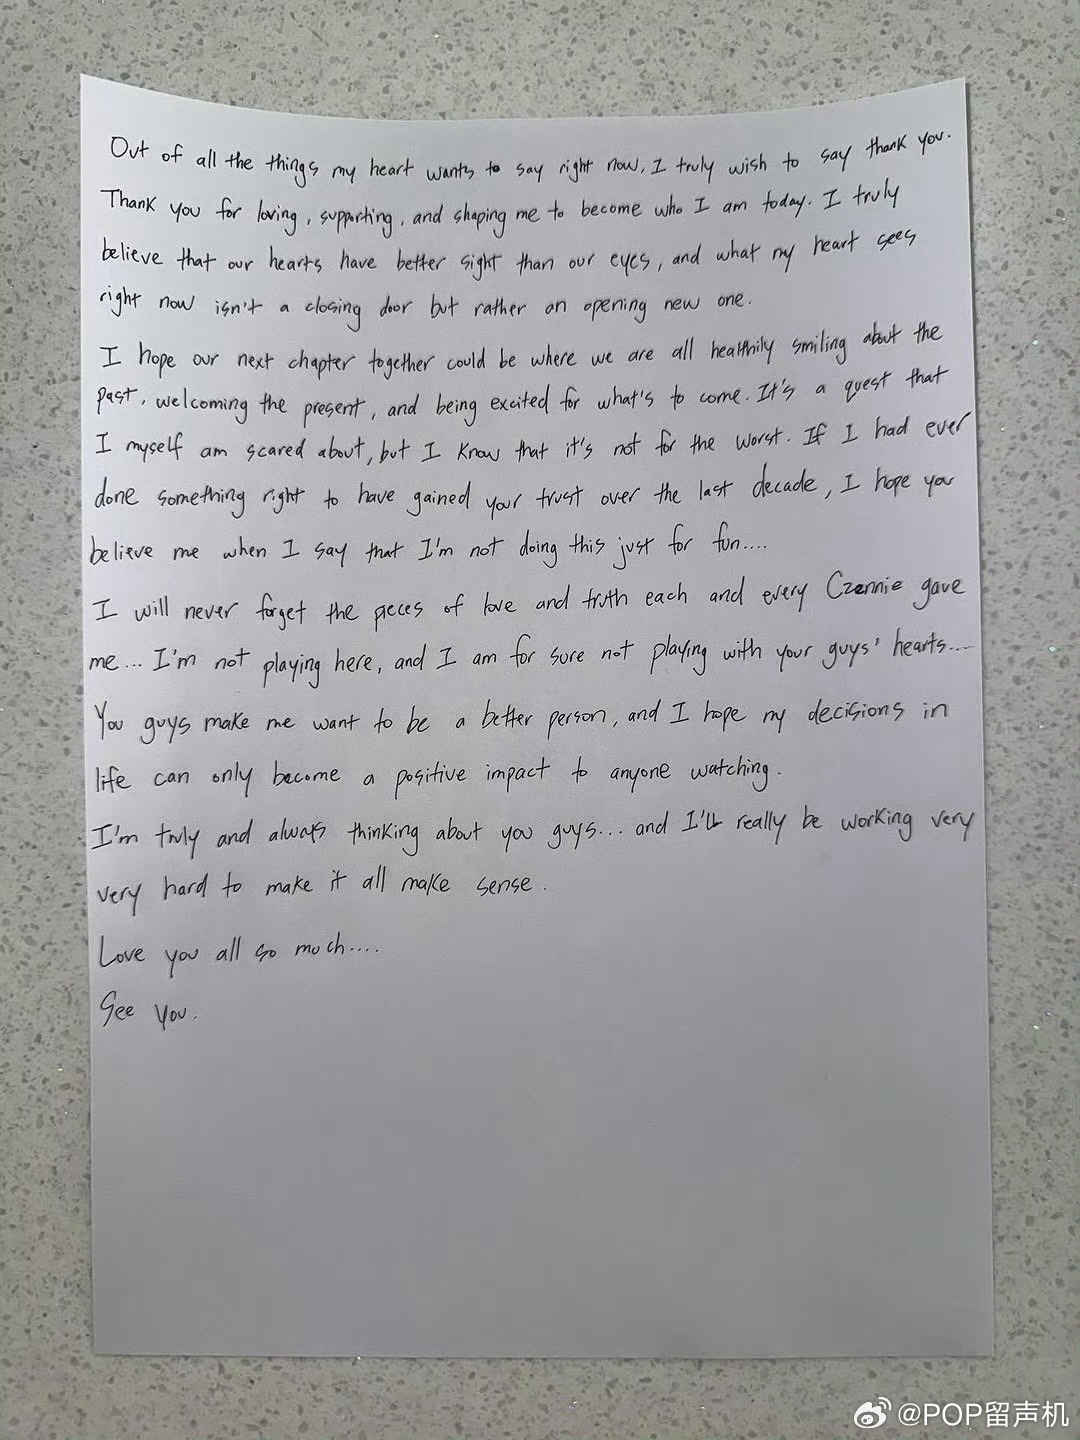 Out of all the things my heart wants to say right now, I truly wish to say thank you.
Thank you for loving, supporting, and shaping me to become who I am today. I truly
believe that our hearts have better sight than our eyes, and what my heart sees
right now isn't a closing door but rather an opening new one.
I hope our next chapter together could be where we are all healthily smiling about the
past, welcoming the present, and being excited for what's to come. It's a quest that
I myself am scared about, but I know that it's not for the worst. If I had ever
done something right to have gained your trust over the last decade, I hope you
believe me when I say that I'm not doing this just for fun....
I will never forget the pieces of love and truth each and every Czennie gave
me... I'm not playing here, and I am for sure not playing with your guys' hearts....
You guys make me want to be a better person, and I hope my decisions in
life can only become a positive impact to anyone watching.
I'm truly and always thinking about you guys... and I'll really be working very
very hard to make it all make sense.
Love you all so much....
See you.
@POP留声机